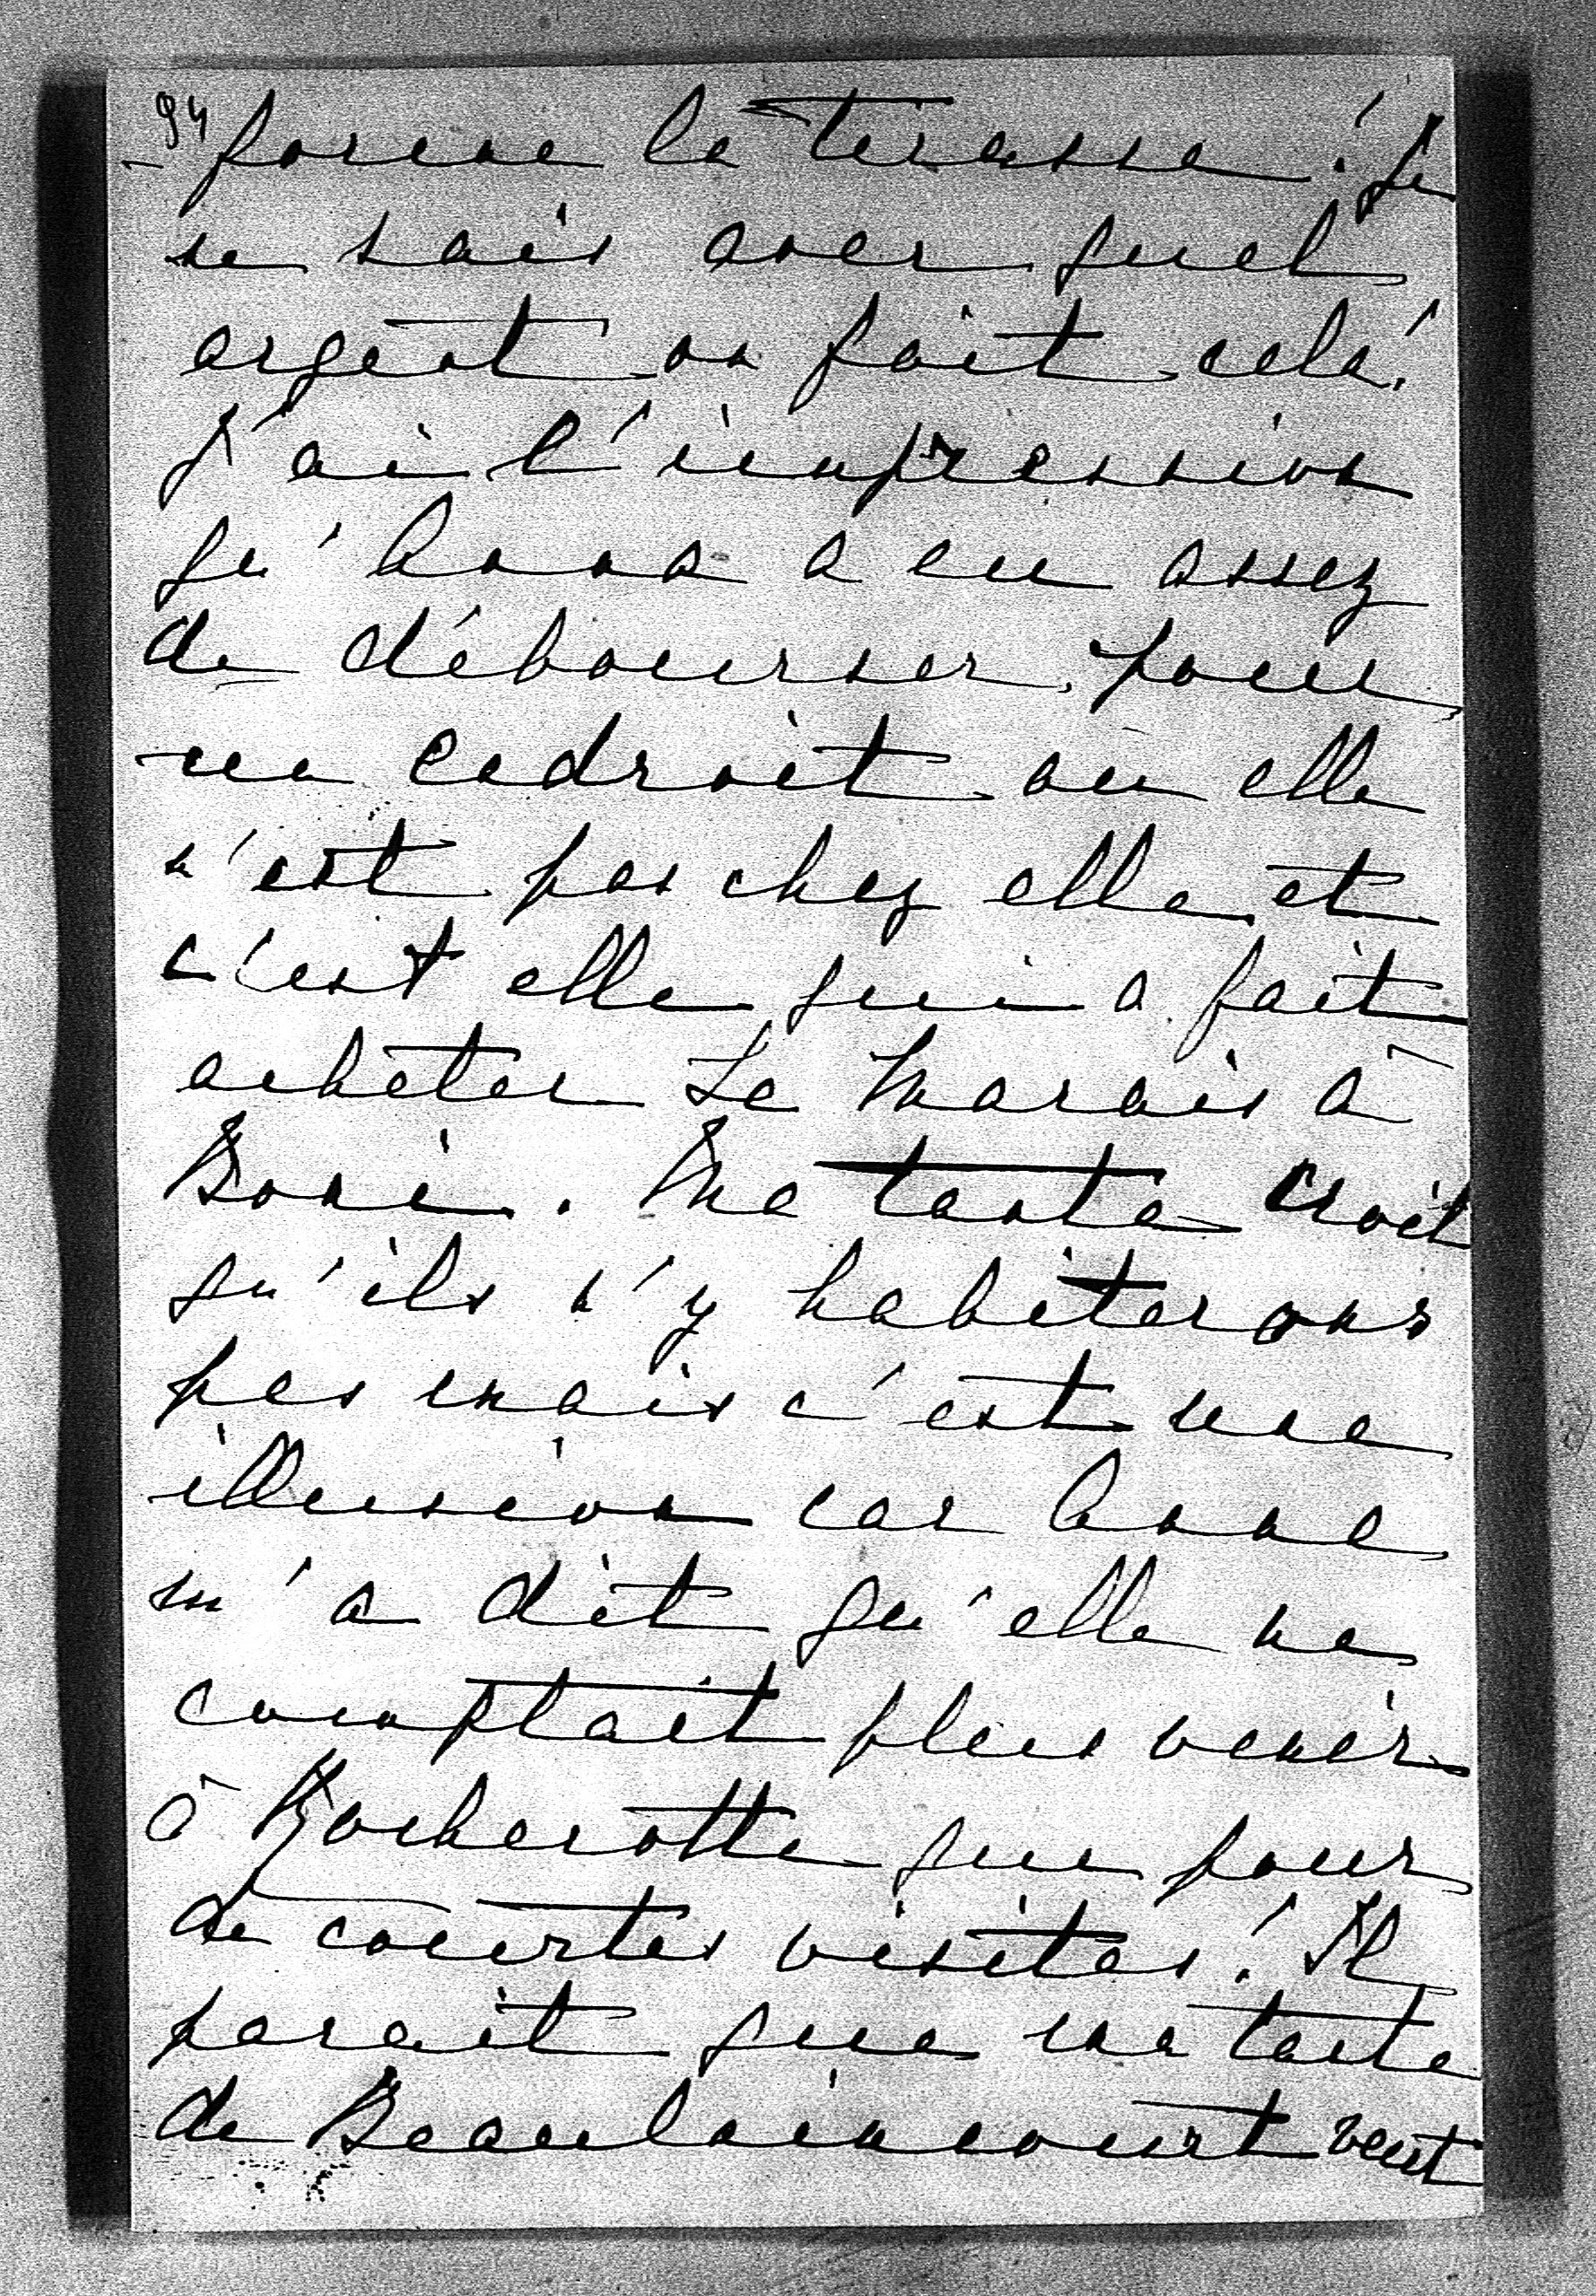 94
forme la terasse ! Je
ne sais avec quel
argent on fait cela !
J'ai l'impression
qu'Anna a eu assez
de débourser pour
un endroit ou elle
n'est pas chez elle et
c'est elle qui a fait
acheter Le Marais à
Boni. Ma tante croit
qu'ils n'y habiterons
pas mais c'est une
illusion car Anna
m'a dit qu'elle ne
comptait plus venir
à Rochecotte que pour
de courtes visites ! Il
parait que ma tante
de Beaulaincourt veut